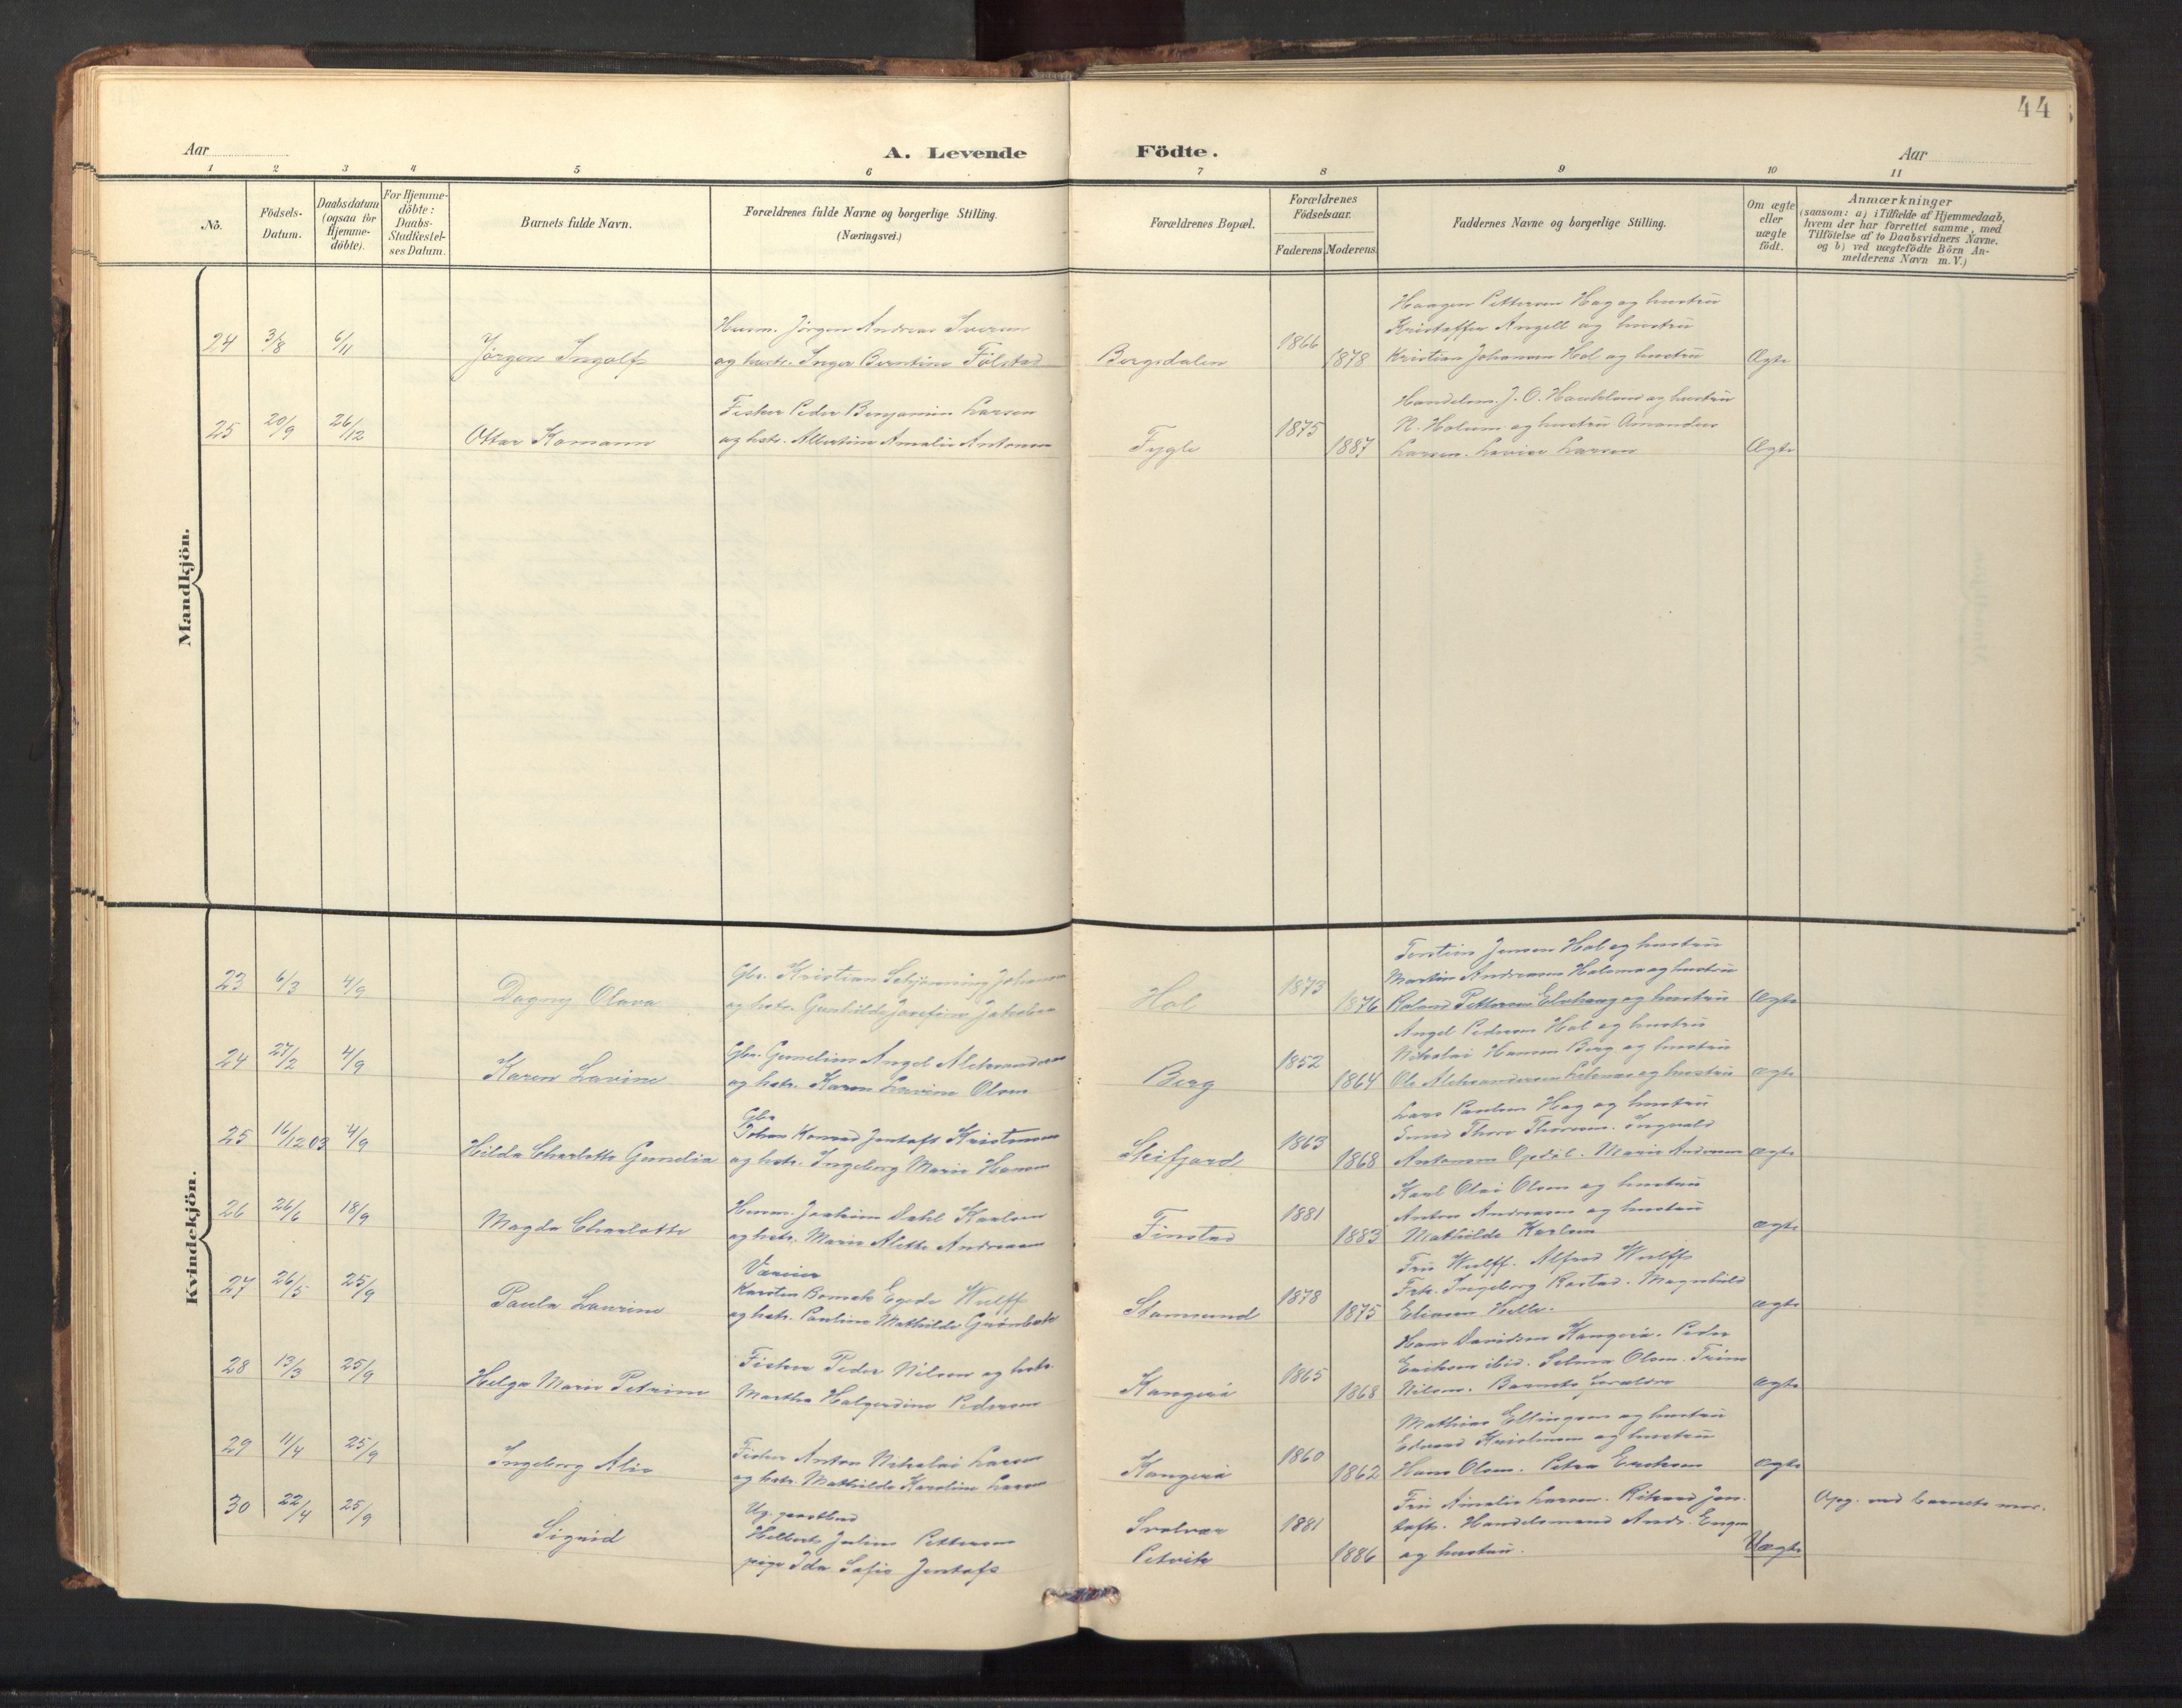 44
Aar
A. Levende
Födte.
Aar
1 2 3 4 5 6 7 8 9 10 11
No.
Födsels-
Datum.
Daabsdatum
(ogsaa for
Hjemme-
döbte).
For Hjemme-
döbte:
Daabs-
Stadfestel-
ses Datum.
Barnets fulde Navn.
Forældrenes fulde Navne og borgerlige Stilling.
(Næringsvei.)
Forældrenes Bopæl.
Forældrenes
Födselsaar.
Faderens Moderens
Faddernes Navne og borgerlige Stilling.
Om ægte
eller
uægte
födt.
Anmærkninger
(saasom: a) i Tilfælde af Hjemmedaab,
hvem der har forrettet samme, med
Tilföielse af to Daabsvidners Navne.
og b) ved uægtefödte Börn An-
melderens Navn m. V.)
Mandkjön.
24 3/8 6/11
Jørgen Ingolf
Husm. Jörgen Andreas Iversen
og hustr. Inger Berntine Fölstad
Bergsdalen
1866
1878
Haagen Pettersen Hag og hustru
Kristoffer Angell og hustru
Kristian Johansen Hol og hustru
Ægte
25 20/9 26/12
Ottar Komann
Fisker Peder Benjamin Larsen
og hstr. Albertine Amalie Antonsen
Fygle
1875
1887
Handelsm. J. O. Haukland og hustru
N. Holum og hustru Amandus
Larsen. Lovise Larsen
Ægte
Kvindekjön.
23 6/3 4/9
Dagny Olava
Gbr. Kristian Schjönning Johansen
og hstr. Gunhilde Josefine Jakobsen
Hol
1873
1876
Torstein Jensen Hol og hustru
Martin Andreasen Holsmo og hustru
Roland Pettersen og hustru
Ægte
24 27/2 4/9
Karen Lavine
Gbr. Gunelius Angel Aleksandersen
og hstr. Karen Lavine Olsen
Berg
1852
1864
Angel Pedersen Hol og hustru
Nikolai Hansen Berg og hustru
Ole Aleksandersen og hustru
ægte
25 16/12 03 4/9
Hilda Charlotte Gunelia
Gbr
Johan Konrad Jentoft Kristensen
og hstr. Ingeborg Marie Hansen
Skifjord
1863
1868
Lars Paulsen Hag og hustru
Smed Thore Thoresen. Ingvald
Antonsen Opdöl. Marie Andersen
ægte
26 26/6 18/9
Magda Charlotte
Husm. Joakim Dahl Karlsen
og hstr. Marie Alette Andreasen
Finstad
1881
1883
Karl Olai Olsen og hustru
Anton Andreasen og hustru
Mathilde Karlsen
ægte
27 26/5 25/9
Paula Laurine
Væreier
Karsten Egede Wulff
og hstr. Pauline Mathilde Grönbek
Stamsund
1878
1875
Fru Wulff. Alfred Wulff
Frk. Ingeborg Rostad. Magnhild
Eliasen Helle.
ægte
28 13/3 25/9
Helga Marie Petrine
Fisker Peder Nilsen og hstr.
Martha Halgerdine Pedersen
Kangerö
1865
1868
Hans Davidsen Kangerö. Peder
Eriksen ibid. Selma Olsen. Trine
Nilsen. Barnets forældre
ægte
29 11/4 25/9
Ingeborg Alis
Fisker Anton Nikolai Larsen
og hstr. Mathilde Karoline Larsen
Kangerö
1860
1862
Mathias Ellingsen og hustru
Edvard Kristensen og hustru
Hans Olsen. Petra Eriksen
ægte
30 22/4 25/9
Sigrid
Ug.
Helbert Julius Pettersen
pige Ida Sofie Jentoft
Svolvær
Petvik
1881
1886
Fru Amalie Larsen. Rikard Jen-
toft. Handelsmand Andr. Engen
og hustru.
Uægte
Opg. ved barnets mor.